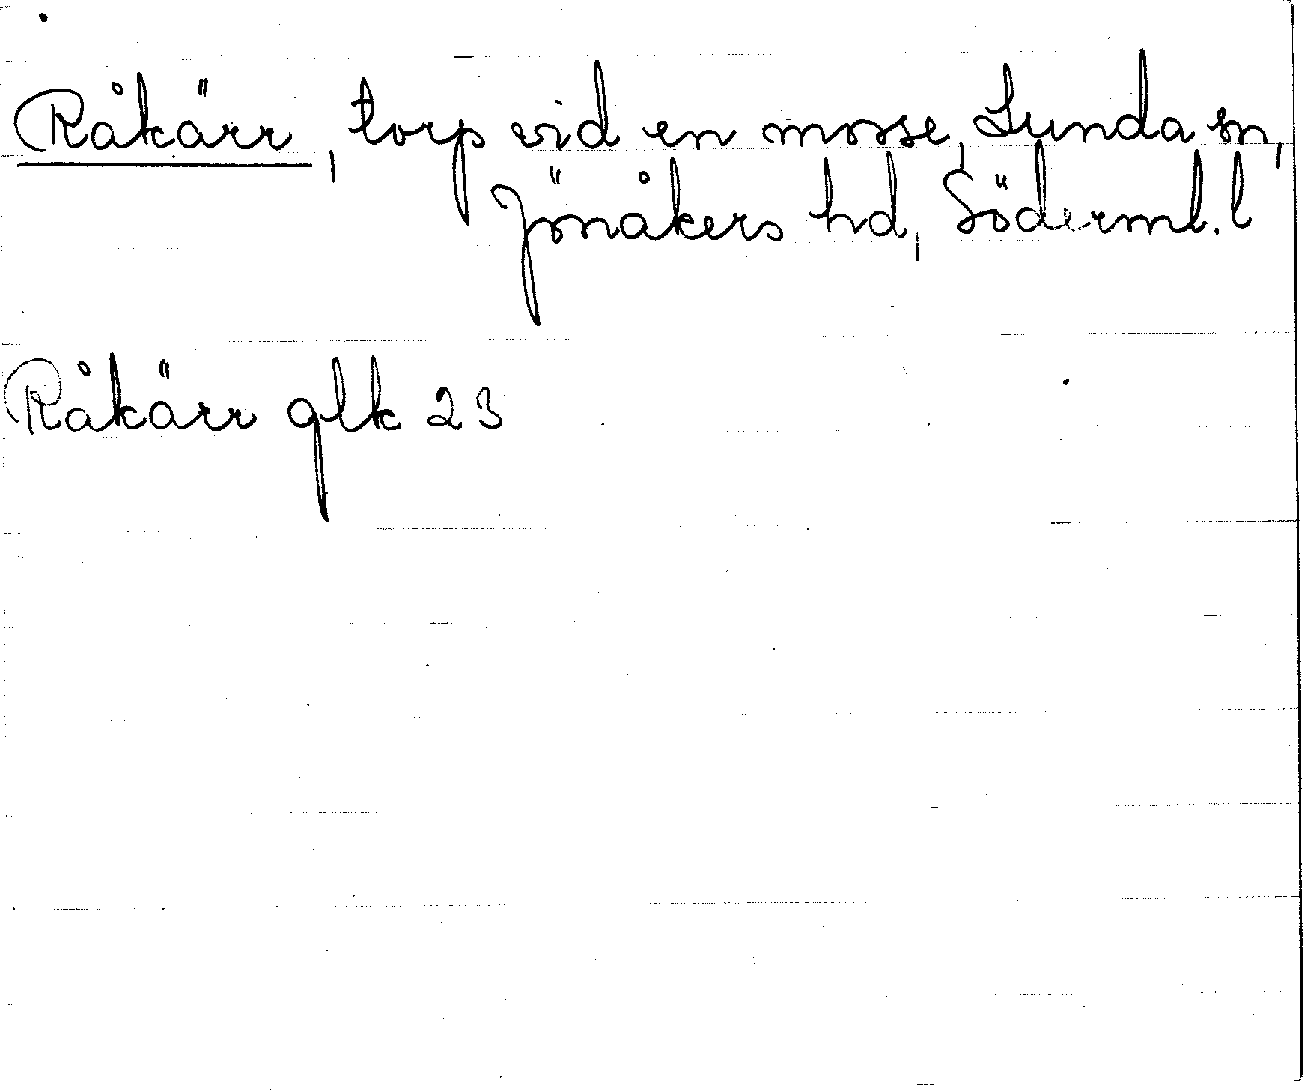 Råkärr, torp vid en mosse, Lunda sn,
Jönåkers hd, Söderml. l
Råkärr glk 23